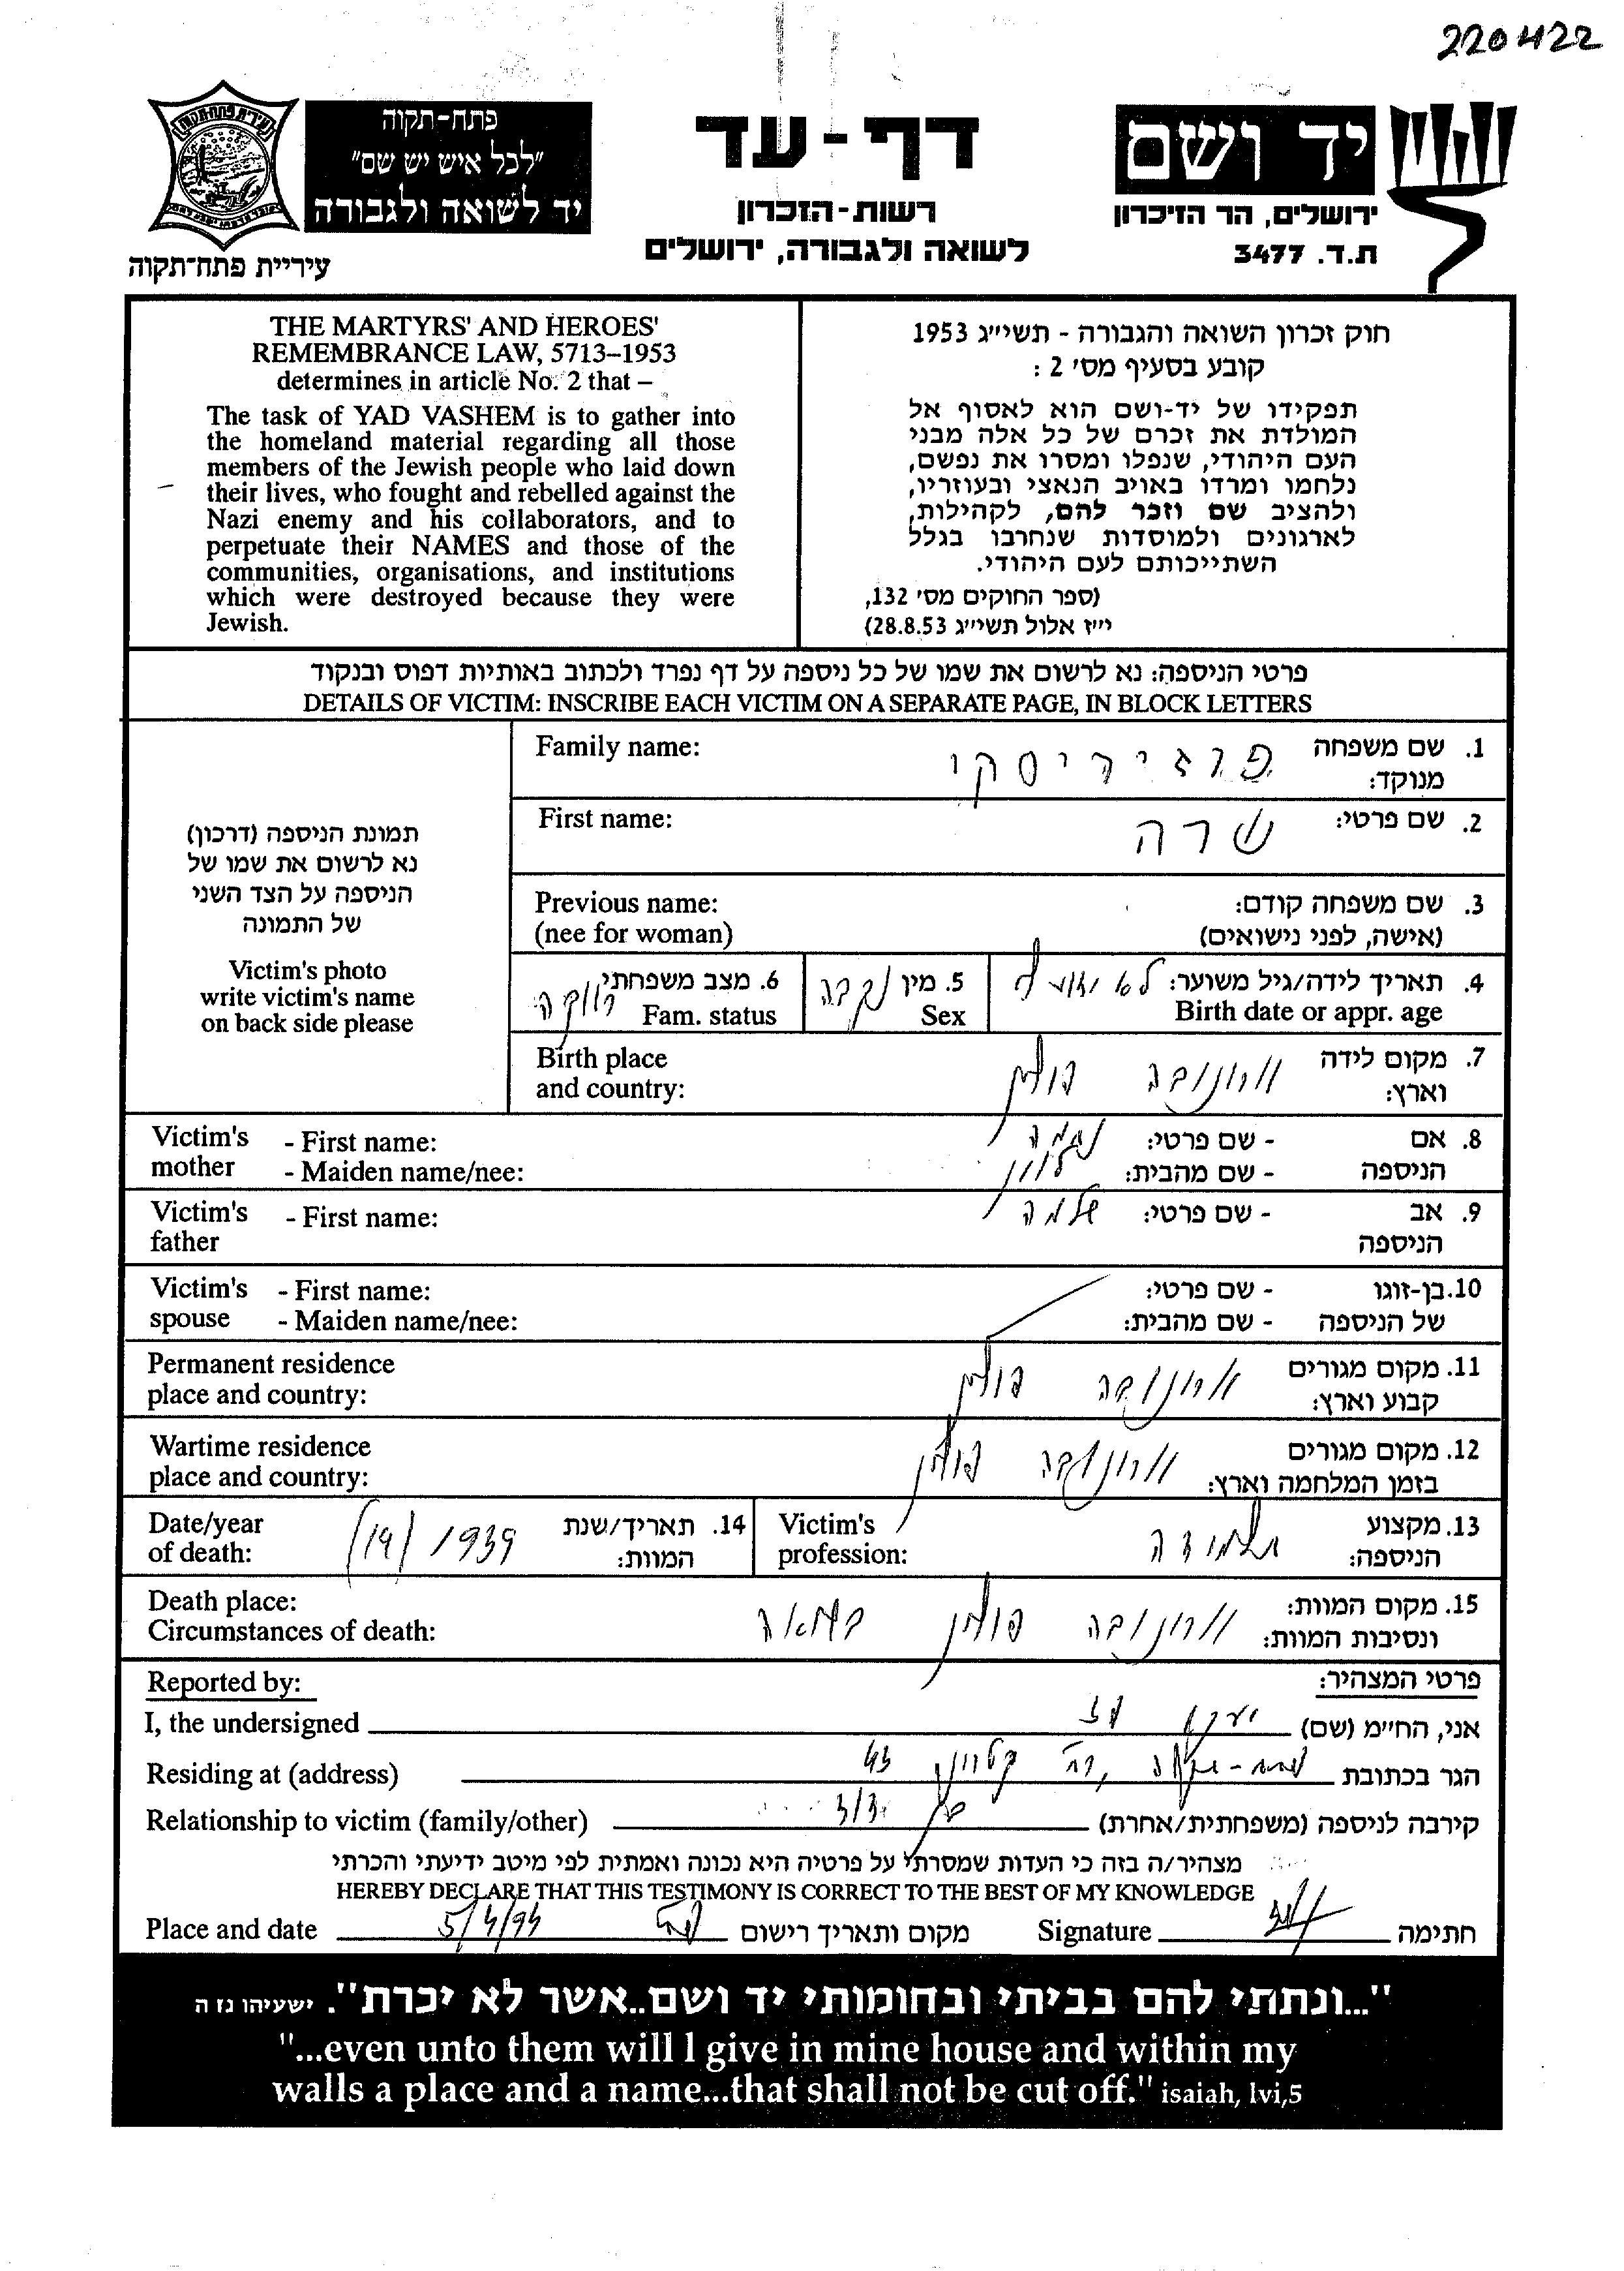 220422
יד ושם
ירושלים, הר הזיכרון
ת.ד. 3477
דף-עד
רשות-הזכרון
לשואה ולגבורה, ירושלים
פתח-תקוה
"לכל איש יש שם"
יד לשואה ולגבורה
עיריית פתח-תקוה
חוק זכרון השואה והגבורה - תשי״ג 1953
קובע בסעיף מס׳ 2 :
תפקידו של יד-ושם הוא לאסוף אל
המולדת את זכרם של כל אלה מבני
העם היהודי, שנפלו ומסרו את נפשם,
נלחמו ומרדו באויב הנאצי ובעוזריו,
ולהציב שם וזכר להם, לקהילות,
לארגונים ולמוסדות שנחרבו בגלל
השתייכותם לעם היהודי.
(ספר החוקים מס׳ 132,
י״ז אלול תשי״ג 28.8.53)
THE MARTYRS' AND HEROES'
REMEMBRANCE LAW, 5713–1953
determines in article No. 2 that –
The task of YAD VASHEM is to gather into
the homeland material regarding all those
members of the Jewish people who laid down
their lives, who fought and rebelled against the
Nazi enemy and his collaborators, and to
perpetuate their NAMES and those of the
communities, organisations, and institutions
which were destroyed because they were
Jewish.
פרטי הניספה: נא לרשום את שמו של כל ניספה על דף נפרד ולכתוב באותיות דפוס ובנקוד
DETAILS OF VICTIM: INSCRIBE EACH VICTIM ON A SEPARATE PAGE, IN BLOCK LETTERS
תמונת הניספה (דרכון)
נא לרשום את שמו של
הניספה על הצד השני
של התמונה
Victim's photo
write victim's name
on back side please
1. שם משפחה
מנוקד:
Family name:
2. שם פרטי: שרה
First name:
3. שם משפחה קודם:
(אישה, לפני נישואים)
Previous name:
(nee for woman)
4. תאריך לידה/גיל משוער: לא ידוע
Birth date or appr. age
5. מין נקבה
Sex
6. מצב משפחתי רווקה
Fam. status
7. מקום לידה
וארץ: פולין
Birth place
and country:
8. אם - שם פרטי: נחמה
הניספה - שם מהבית:
Victim's - First name:
mother - Maiden name/nee:
9. אב - שם פרטי: שלמה
הניספה
Victim's - First name:
father
10. בן-זוגו - שם פרטי:
של הניספה - שם מהבית:
Victim's - First name:
spouse - Maiden name/nee:
11. מקום מגורים
קבוע וארץ: פולין
Permanent residence
place and country:
12. מקום מגורים
בזמן המלחמה וארץ: פולין
Wartime residence
place and country:
13. מקצוע
הניספה: תלמידה
Victim's
profession:
14. תאריך/שנת
המוות: 1939
Date/year
of death:
15. מקום המוות:
ונסיבות המוות: פולין בשואה
Death place:
Circumstances of death:
פרטי המצהיר:
Reported by:
אני, החי״מ (שם) יעקב
I, the undersigned
הגר בכתובת פתח-תקוה, רח'
Residing at (address)
קירבה לניספה (משפחתית/אחרת) בן
Relationship to victim (family/other)
מצהיר/ה בזה כי העדות שמסרתי על פרטיה היא נכונה ואמתית לפי מיטב ידיעתי והכרתי
HEREBY DECLARE THAT THIS TESTIMONY IS CORRECT TO THE BEST OF MY KNOWLEDGE
Place and date 5/4/94 מקום ותאריך רישום Signature חתימה
"...ונתתי להם בביתי ובחומותי יד ושם..אשר לא יכרת". ישעיהו נז ה
"...even unto them will I give in mine house and within my
walls a place and a name...that shall not be cut off." isaiah, lvi,5